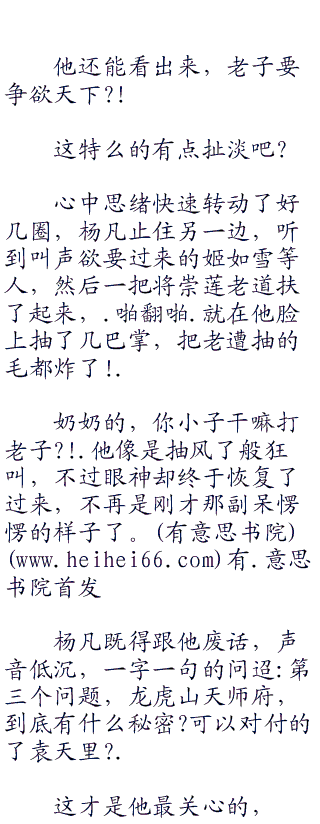 他还能看出来，老子要
争欲天下?!
这特么的有点扯淡吧?
心中思绪快速转动了好
几圈，杨凡止住另一边，听
到叫声欲要过来的姬如雪等
人，然后一把将崇莲老道扶
了起来，.啪翻啪.就在他脸
上抽了几巴掌，把老遭抽的
毛都炸了!.
奶奶的，你小子干嘛打
老子?!.他像是抽风了般狂
叫，不过眼神却终于恢复了
过来，不再是刚才那副呆愣
愣的样子了。(有意思书院)
(www.heihei66.com)有.意思
书院首发
杨凡既得跟他废话，声
音低沉，一字一句的问迢:第
三个问题，龙虎山天师府，
到底有什么秘密?可以对付的
了袁天里?.
这才是他最关心的，